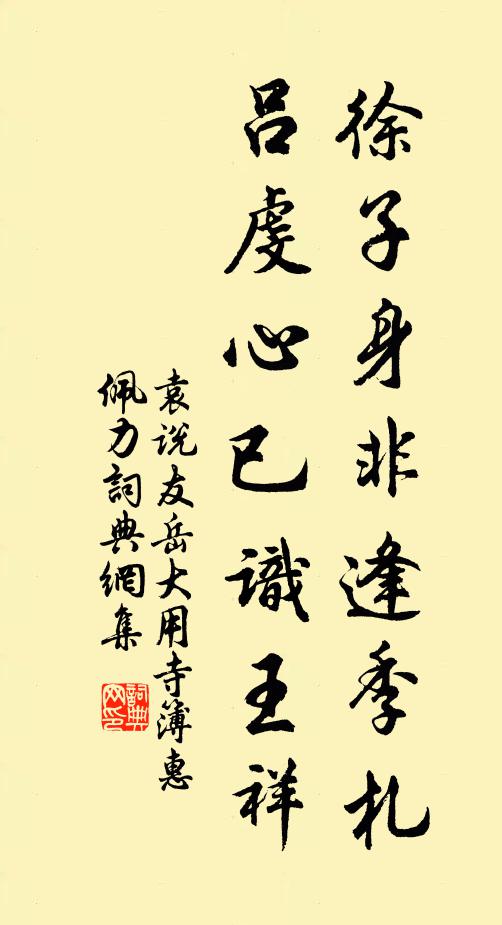 徐子身非逢季札
吕虔心已識王祥
袁说友岳大用寺簿惠
佩力詞典網集
詞典网印